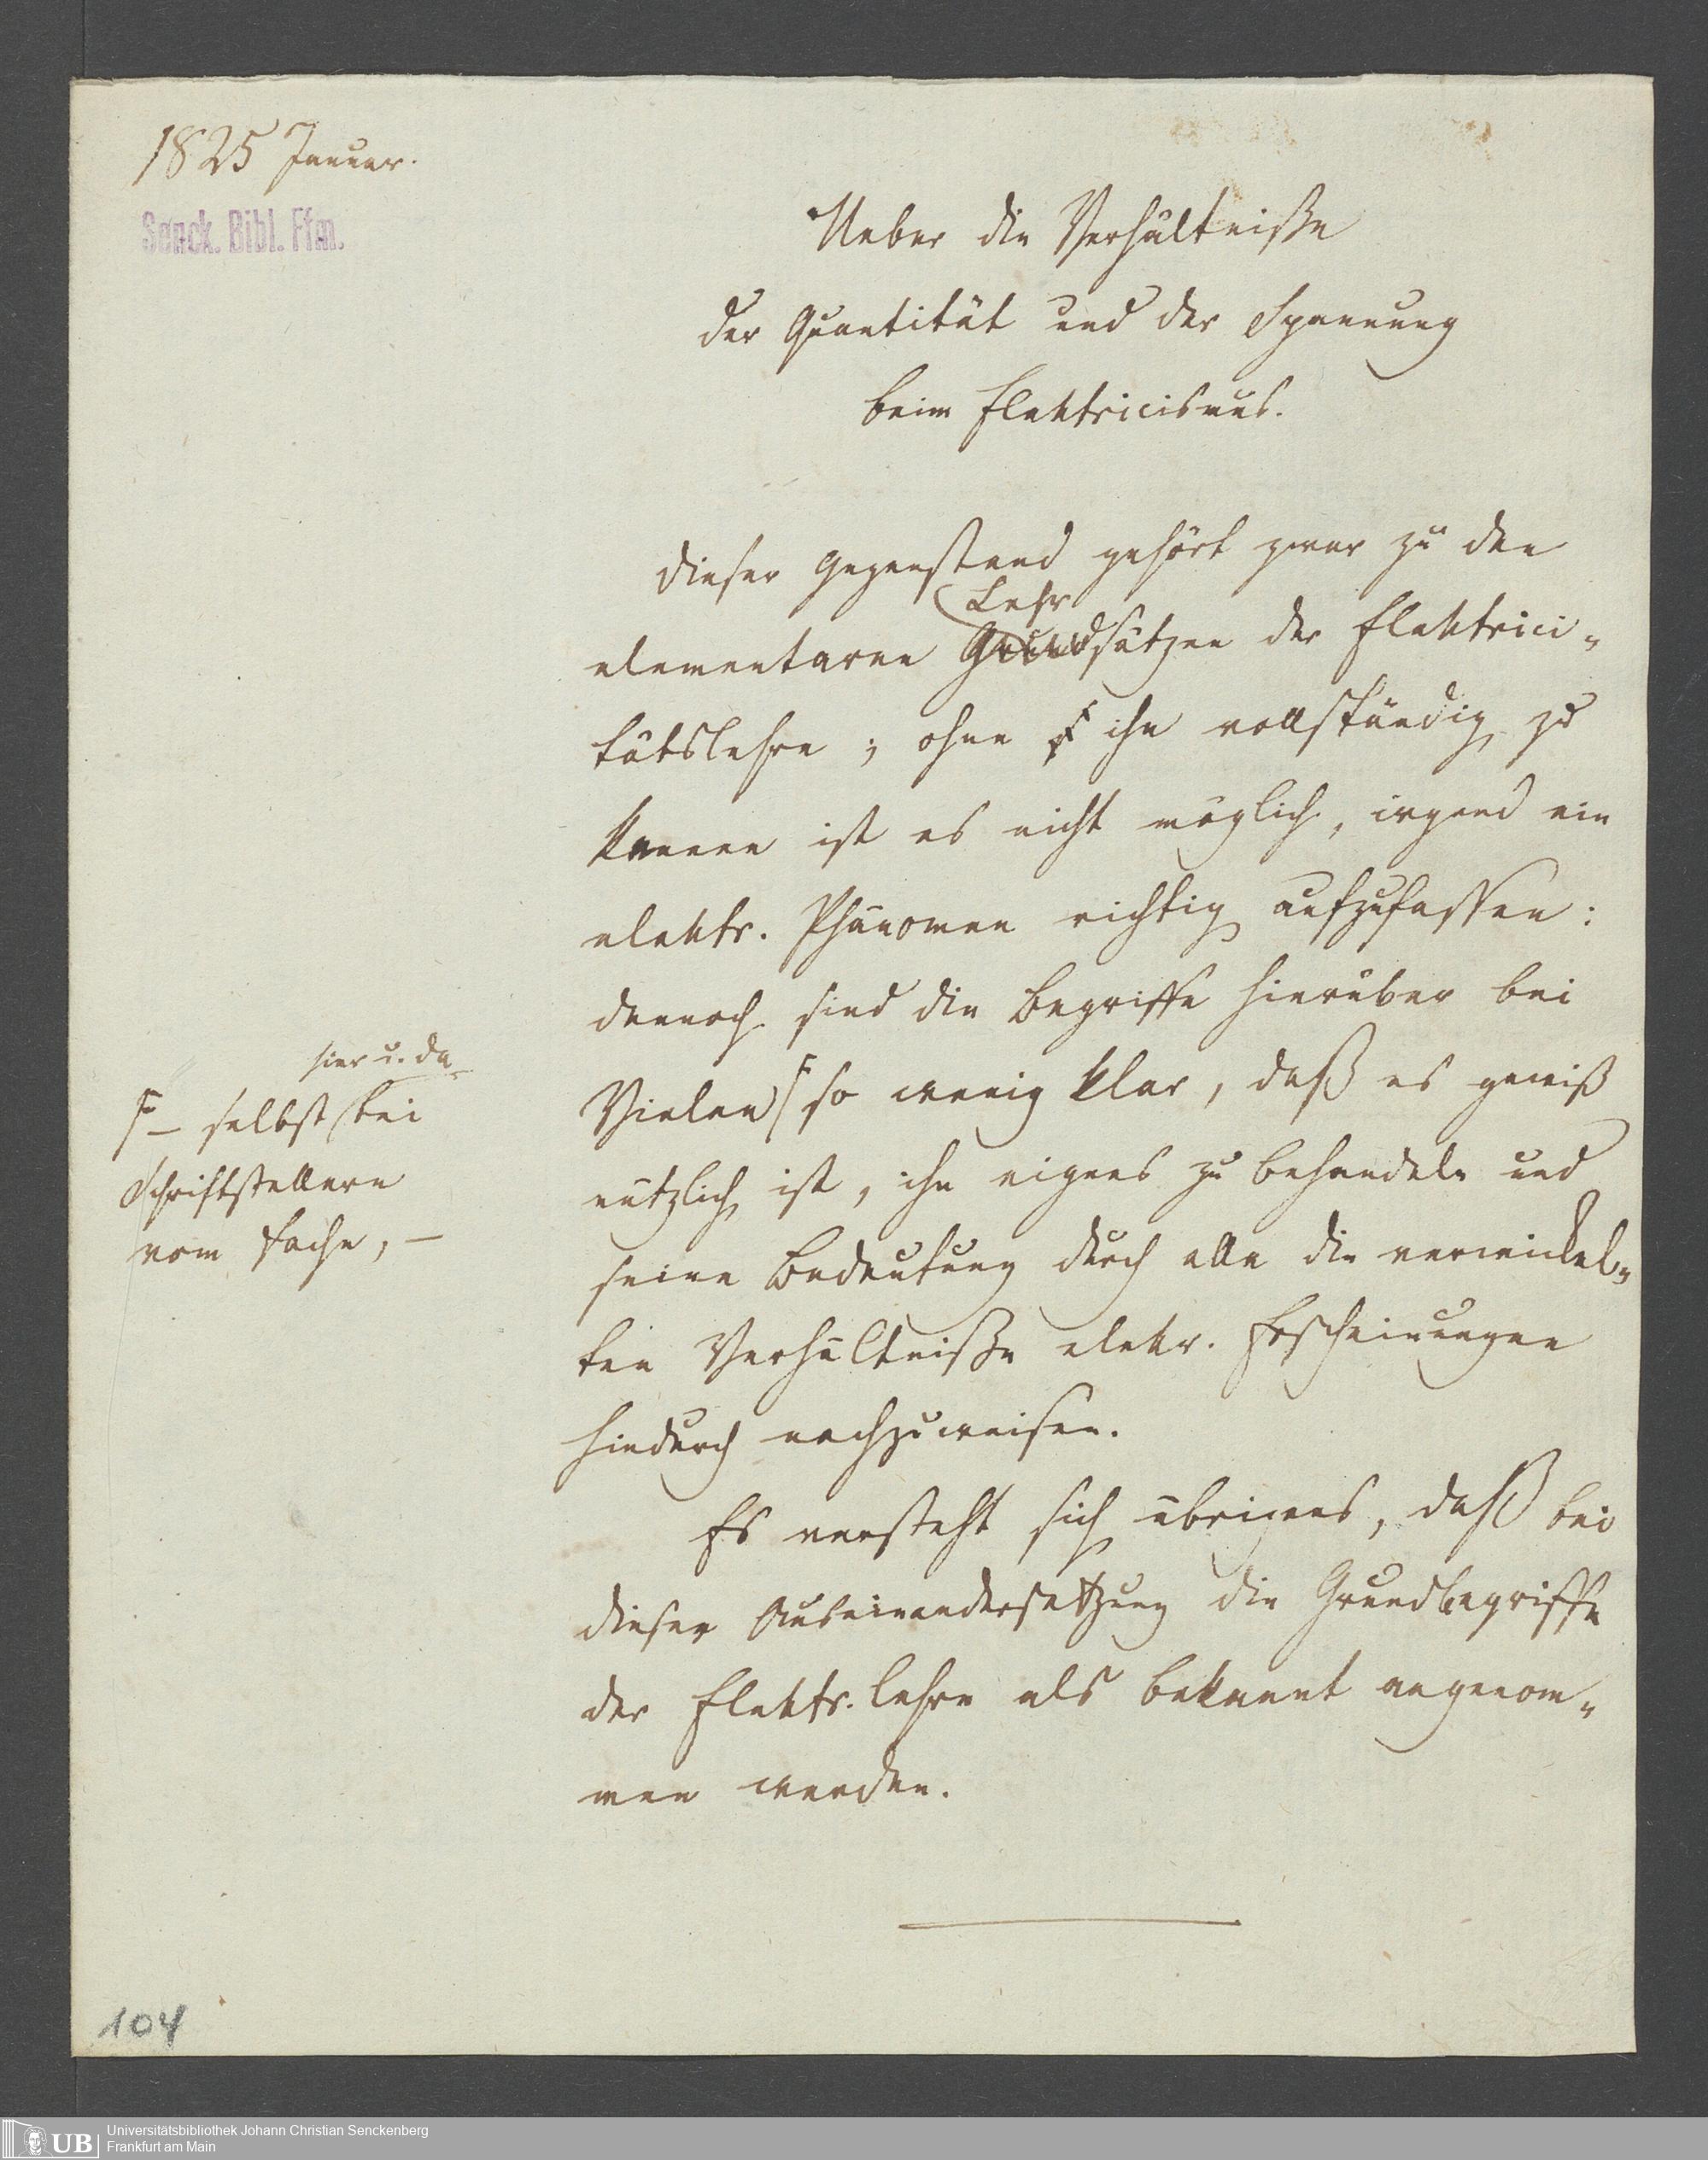 1825 Januar.
Senck. Bibl. Ffm.
Ueber die Verhältniße
der Quantität und der Spannung
beim Elektricismus.
Dieser Gegenstand gehört zwar zu den
Lehr
elementaren Grundsätzen der Elektrici-
tätslehre; ohne ihn vollständig zu
kennen ist es nicht möglich, irgend ein
elektr. Phänomen richtig aufzufassen:
dennoch sind die Begriffe hierüber bei
Vielen so wenig klar, daß es gewiß
nützlich ist, ihn eigens zu behandeln und
seine Bedeutung durch alle die verwickel-
ten Verhältniße elekr. Erscheinungen
hindurch nachzuweisen.
Es versteht sich übrigens, daß bei
dieser Auseinandersetzung die Grundbegriffe
der Elektr. lehre als bekannt angenom-
men werden.
hier u. da
F – selbst bei
Schriftstellern
vom Fache, –
104
UB
Universitätsbibliothek Johann Christian Senckenberg
Frankfurt am Main